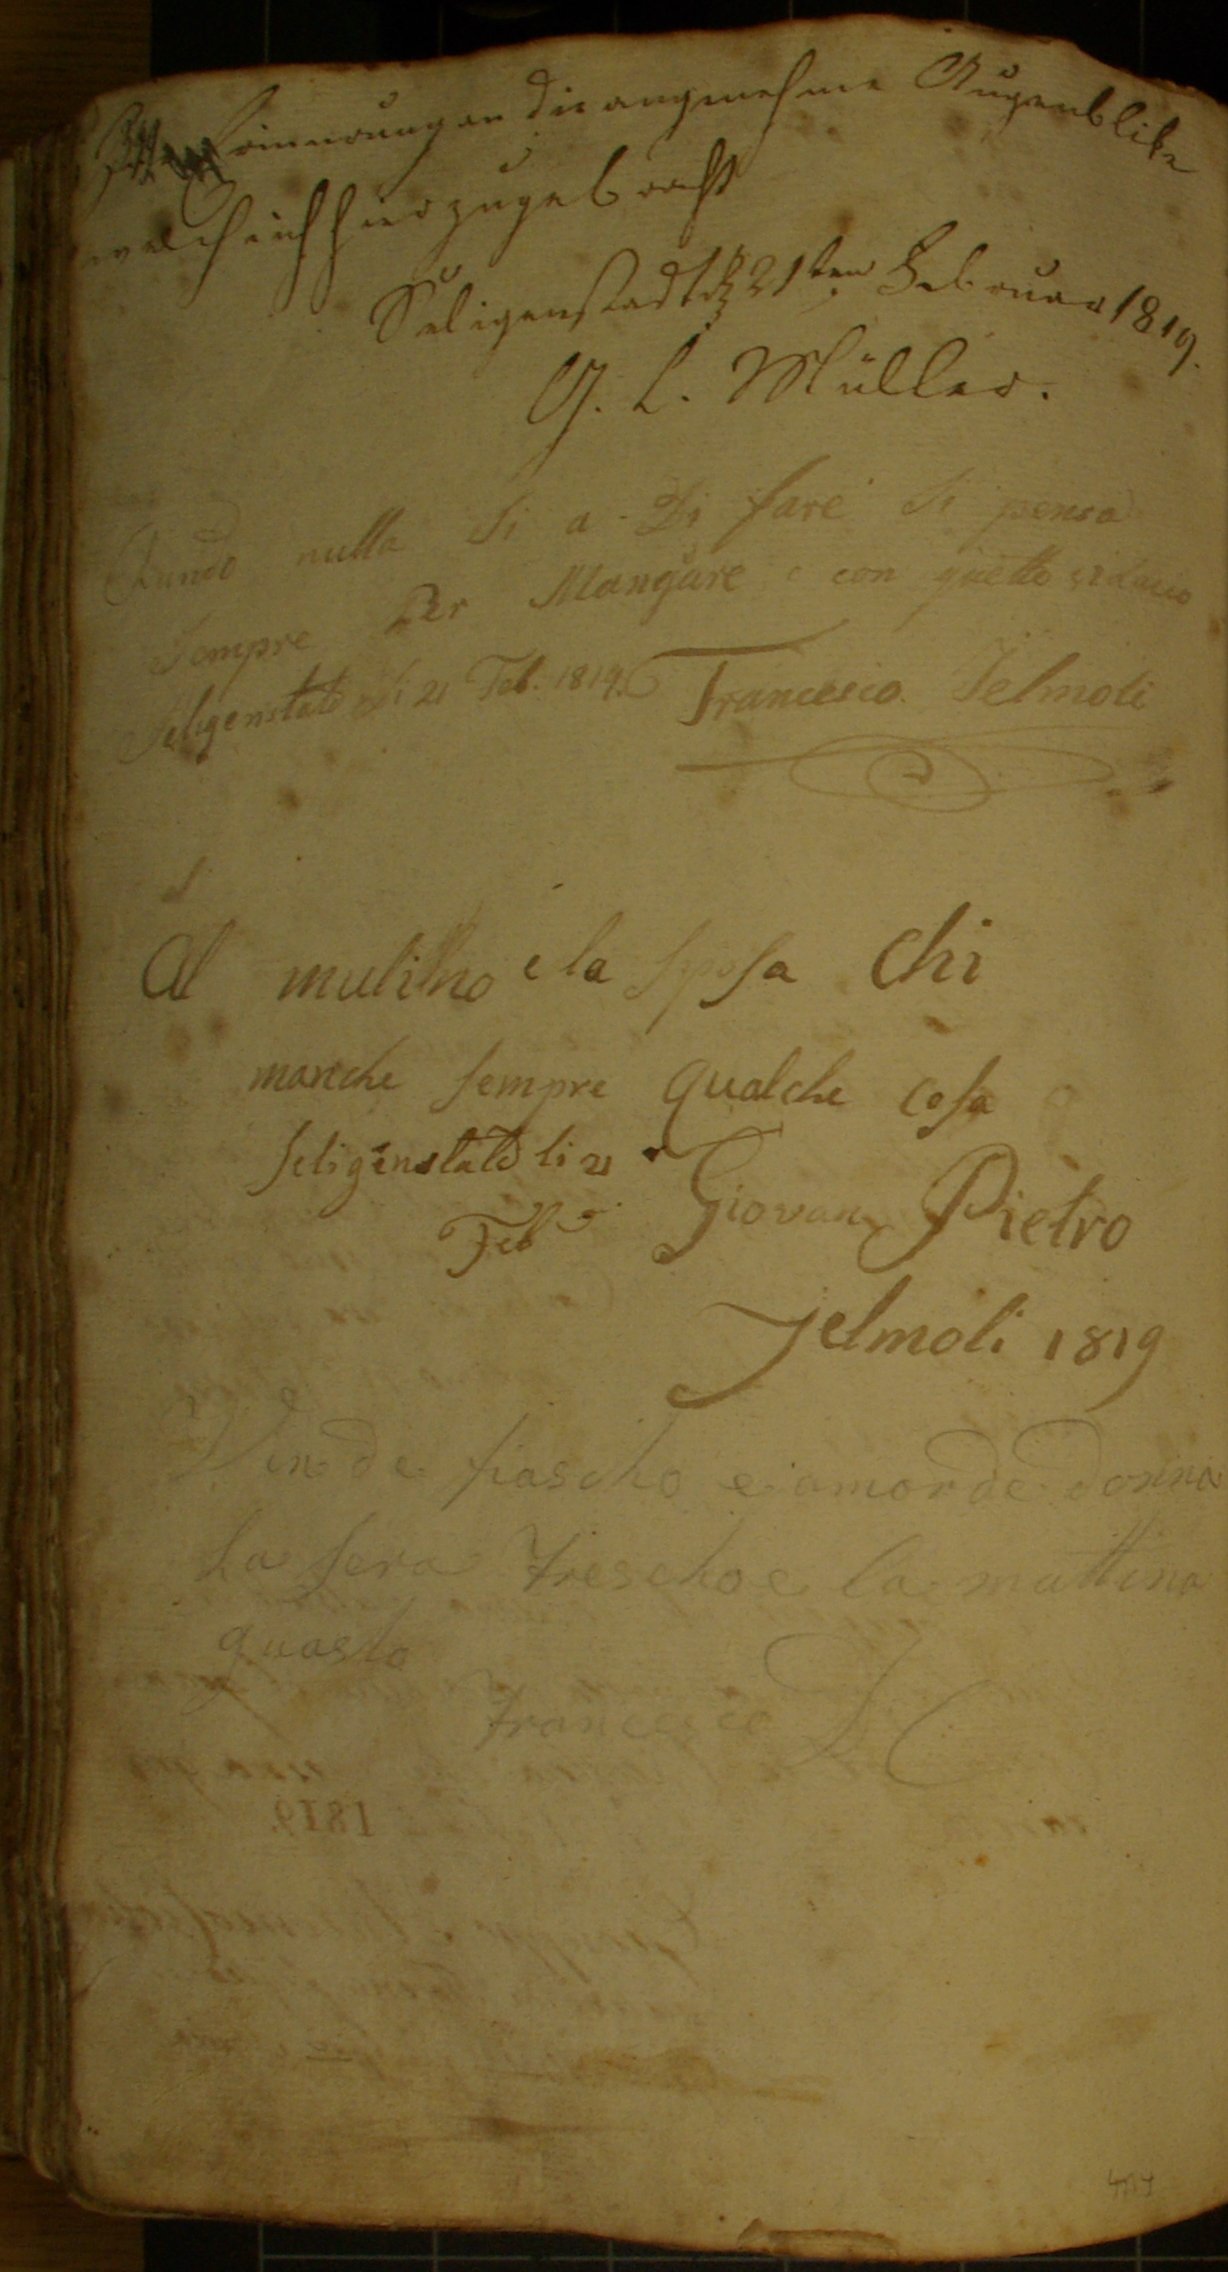 Zur Erinnerung an die angenehme Augenblike
welch ich hier zugebracht
Seligenstadt d 21ten Februar 1819.
G. L. Müller.
Qundo nulla si a Di fare si pensa
Sempre Per Mangiare e con questo
Seligenstatd li 21 Feb. 1819.
Francesco Jelmoli
Al mulino e la sposa Chi
manche sempre qualche cosa
Seligenstatd li 21
Feb
Giovan Pietro
Jelmoli 1819
Vin de fiascho e amor de donna
La sera frescho e la mattina
guasto
Francesco J